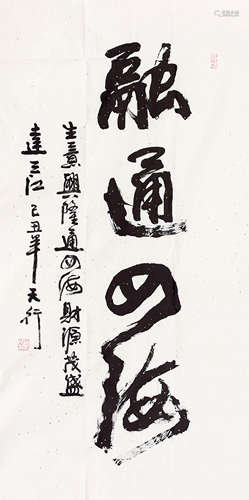 融通四海
生意興隆通四海財源茂盛
達三江己丑年天行